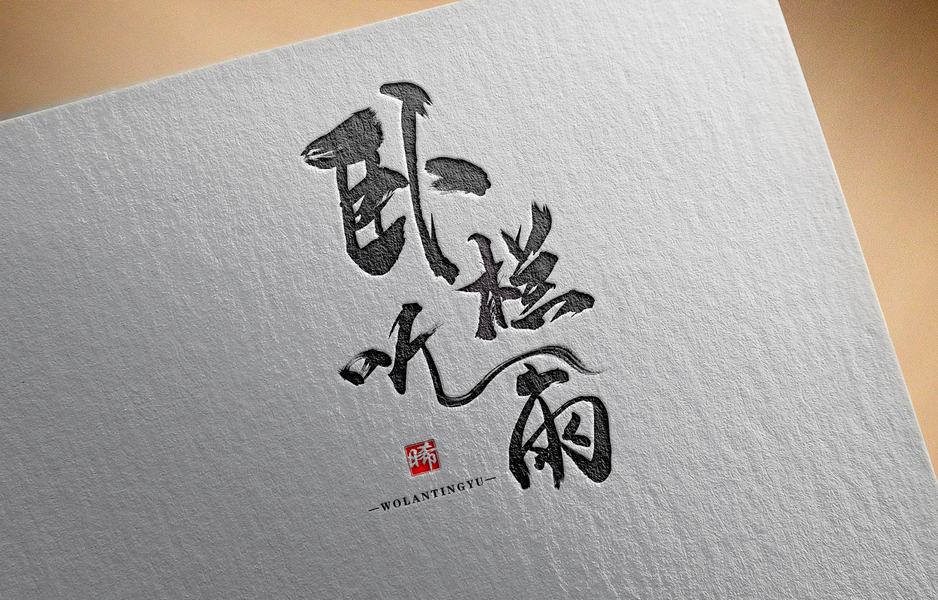 卧栏
听雨
晞
—WOLANTINGYU—